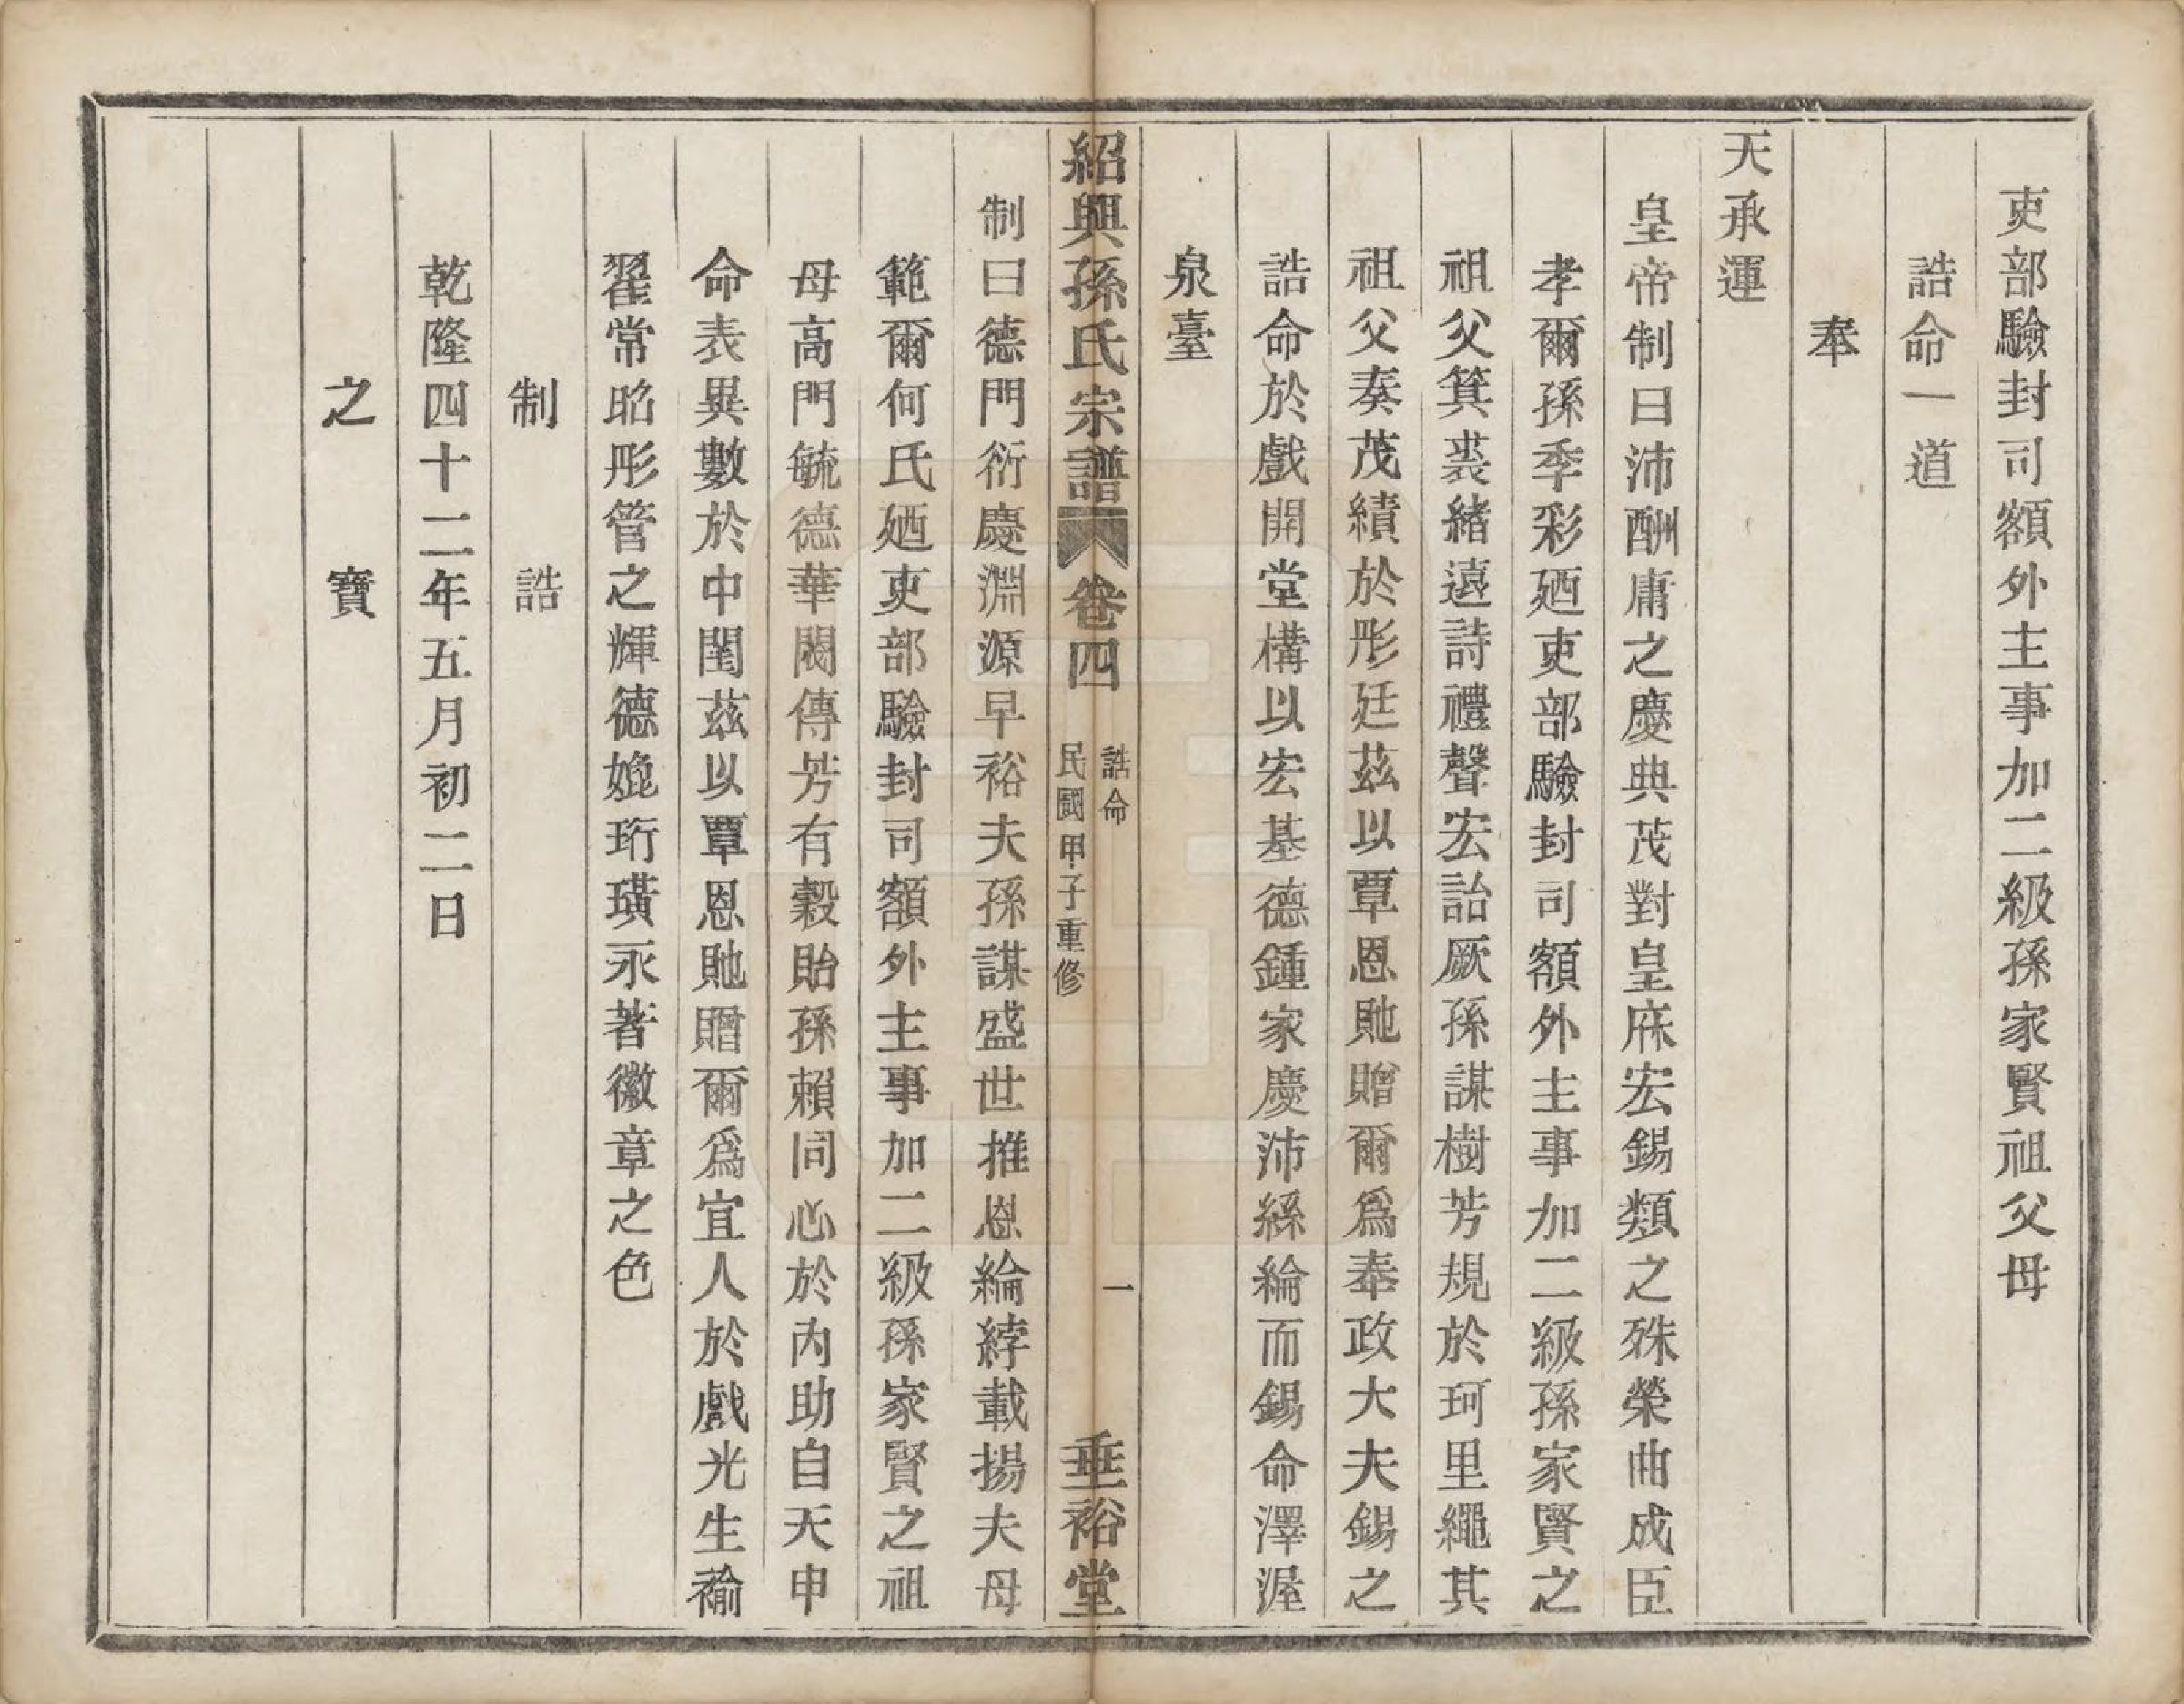 吏部驗封司額外主事加二級孫家賢祖父母
誥命一道
奉
天承運
皇帝制曰沛酬庸之慶典茂對皇庥宏錫類之殊榮曲成臣
孝爾孫季彩廼吏部驗封司額外主事加二級孫家賢之
祖父箕裘緒遠詩禮聲宏詒厥孫謀樹芳規於珂里繩其
祖父奏茂績於彤廷茲以覃恩貤贈爾爲奉政大夫錫之
誥命於戲開堂構以宏基德鍾家慶沛絲綸而錫命澤渥
泉臺
紹興孫氏宗譜 卷四 誥命 民國甲子重修 一 垂裕堂
制曰德門衍慶淵源早裕夫孫謀盛世推恩綸綍載揚夫母
範爾何氏廼吏部驗封司額外主事加二級孫家賢之祖
母高門毓德華閥傳芳有穀貽孫賴同心於內助自天申
命表異數於中閨茲以覃恩貤贈爾爲宜人於戲光生褕
翟常昭彤管之輝德媲珩璜永著徽章之色
制誥
乾隆四十二年五月初二日
之寶